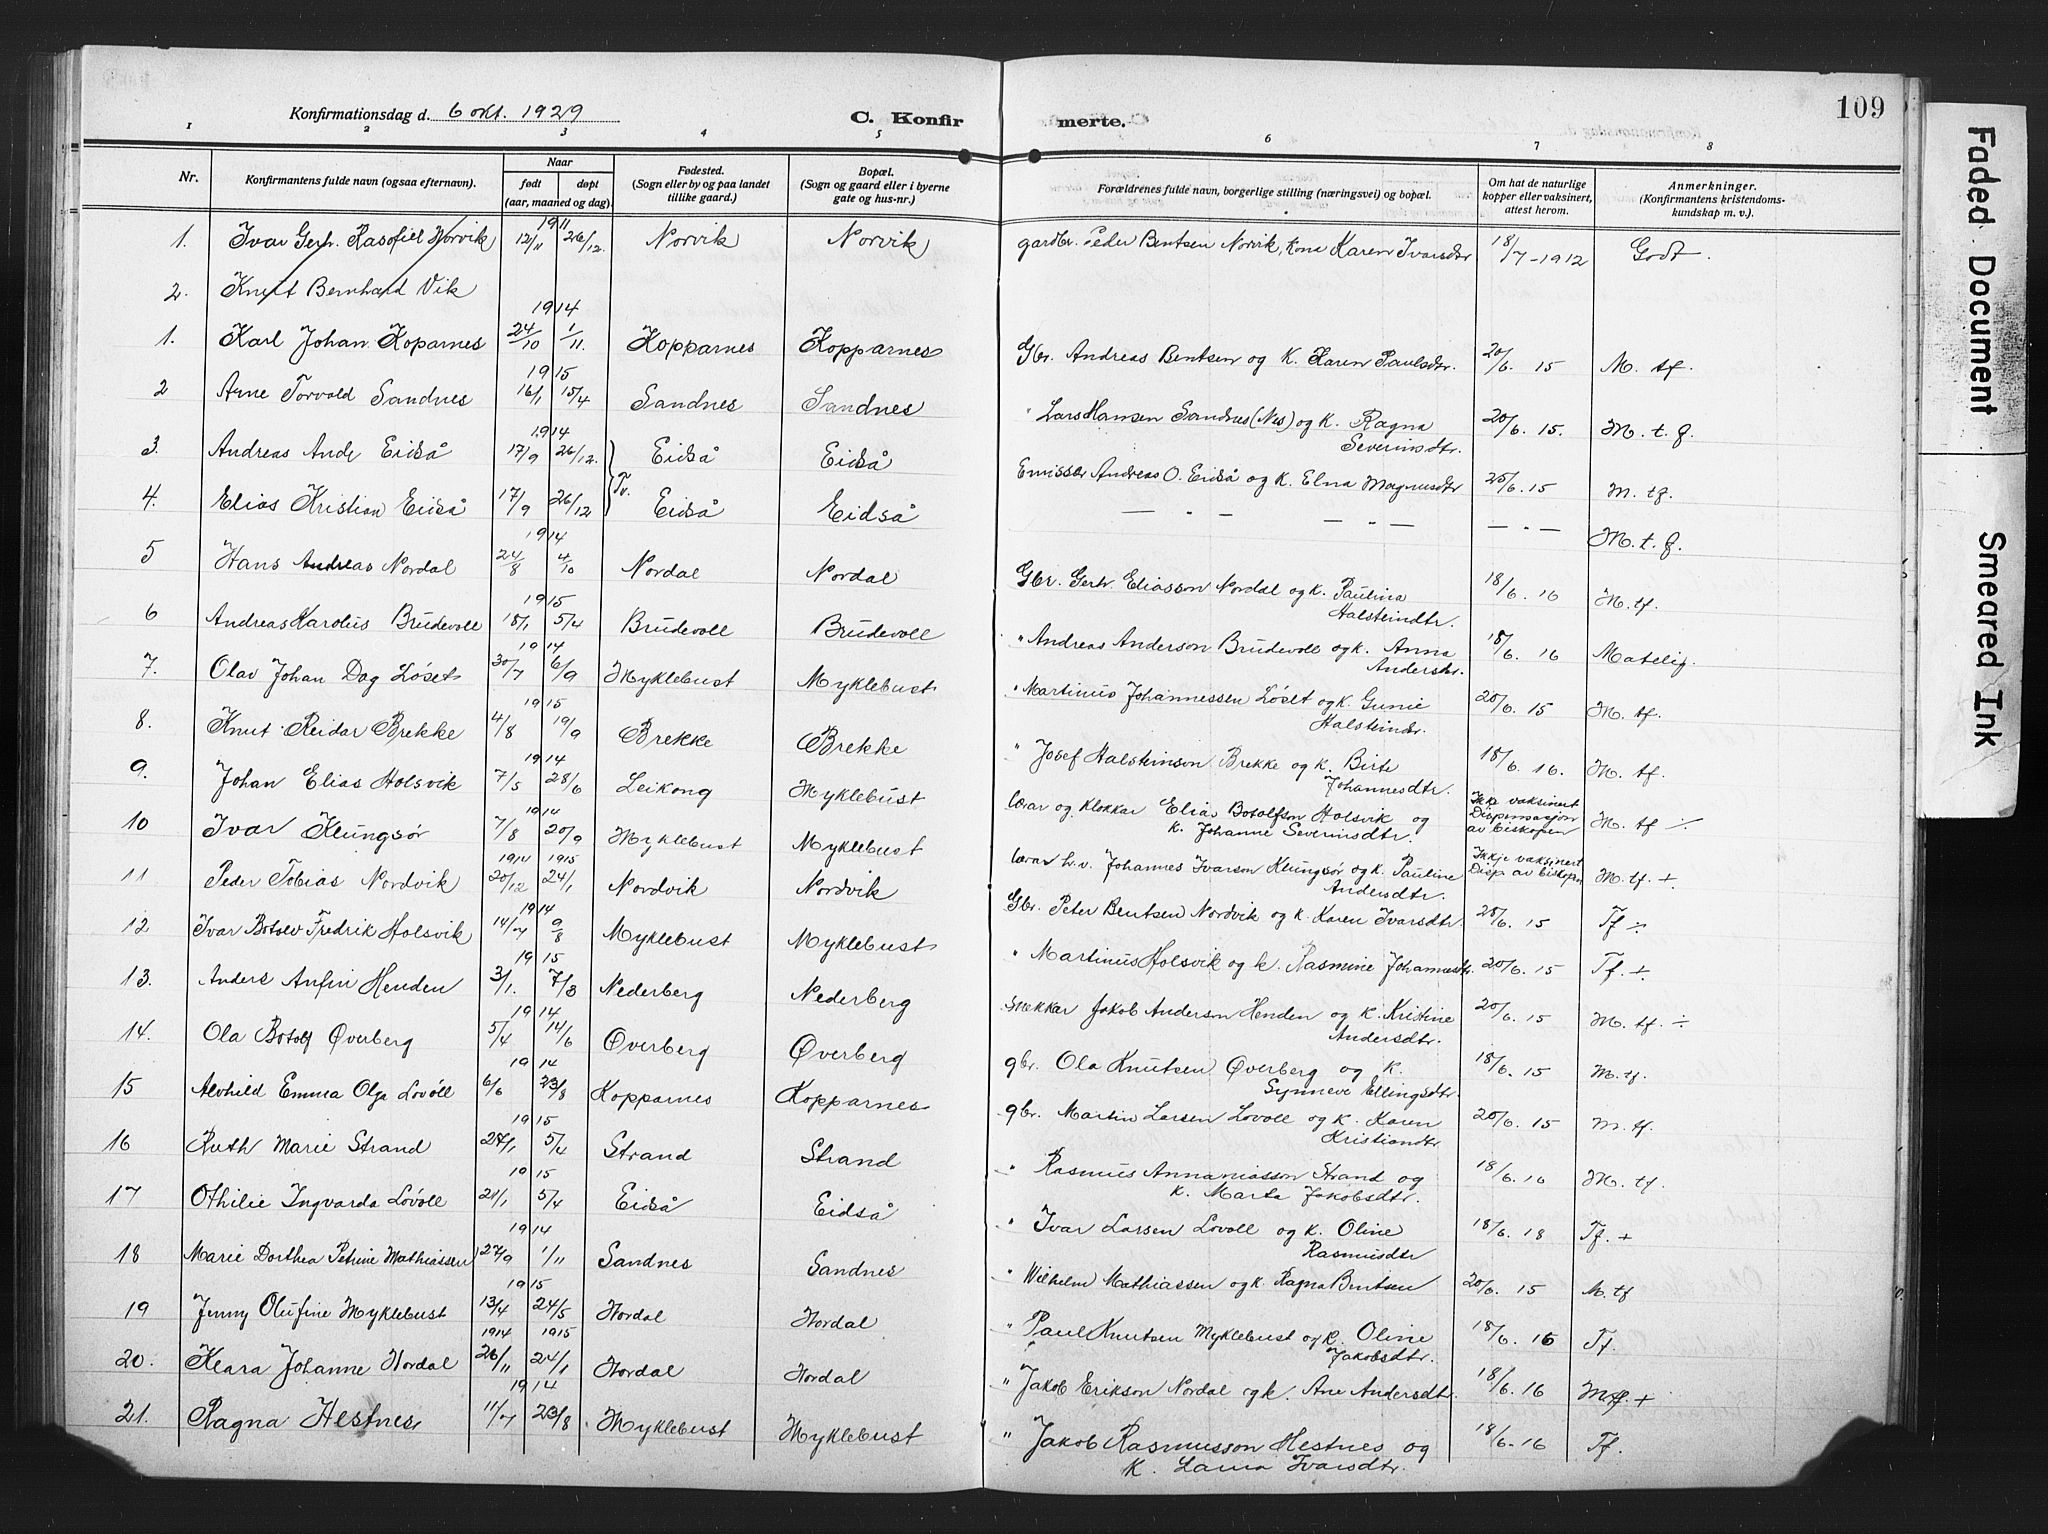 Konfirmationsdag d. 6 okt. 1929 C. Konfir merte. 109
1 2 3 4 5 6 7 8
Nr. Konfirmantens fulde navn (ogsaa efternavn). Naar født døpt (aar, maaned og dag). Fødested. (Sogn eller by og paa landet tillike gaard.) Bopæl. (Sogn og gaard eller i byerne gate og hus-nr.) Forældrenes fulde navn, borgerlige stilling (næringsvei) og bopæl. Om hat de naturlige kopper eller vaksinert, attest herom. Anmerkninger. (Konfirmantens kristendoms-kundskap m. v.)
1911
1. Ivar Gerh. Rasofiel Norvik 12/11 26/12. Norvik Norvik gardbr. Peder Bentsen Norvik, kona Karen Ivarsdtr 18/7-1912 Godt.
2. Knut Bernhard Vik
1914
1. Karl Johan Koparnes 24/10 1/11. Kopparnes Kopparnes Gbr. Andreas Bentsen og K. Karen Paulsdtr. 20/6. 15 M. tf.
1915
2 Arne Torvald Sandnes 16/1 15/4 Sandnes Sandnes " Lars Hansen Sandnes (Nes) og k. Ragna Severinsdtr. 20/6. 15. M. t. f.
1914
3. Andreas Ande Eidså 17/9 26/12. Eidså Eidså Emissær Andreas O. Eidså og k. Elna Magnusdtr 25/6. 15 M. tf.
4. Elias Kristian Eidså 17/9 26/12 Tv. Eidså Eidså — " — — " — — " — M. t. f.
1914
5 Hans Andreas Nordal 24/8 4/10 Nordal Nordal Gbr. Gerh. Eliasson Nordal og k. Paulina Halsteindtr. 18/6. 16 M. tf.
1915
6 Andreas Karolus Brudevoll 18/1 5/4 Brudevoll Brudevoll " Andreas Anderson Brudevoll og k. Anna Andersdtr. 18/6. 16 Matelig.
1914
7. Olav Johan Dag Løset 30/7 6/9 Myklebust Myklebust " Martinus Johannessen Løset og k. Gunie Halsteindtr. 20/6. 15 M. tf.
1915
8. Knut Reidar Brekke 4/8 19/9 Brekke Brekke " Josef Halsteinson Brekke og k. Birte Johannesdtr. 18/6. 16. M. tf.
1914
9. Johan Elias Holsvik 7/5 28/6 Leikong Myklebust lærar og klokkar Elias Botolfson Holsvik og k. Johanne Severinsdtr. Ikkje vaksinert Dispensasjon av biskopen M. tf ÷
1914
10 Ivar Klungsør 7/8 20/9 Myklebust Myklebust lærar h.v. Johannes Ivarson Klungsør og k. Pauline Andersdtr. Ikkje vaksinert Disp av biskopen M. tf. +
1914 1915
11 Peder Tobias Nordvik 20/12 24/1 Nordvik Nordvik Gbr. Peter Bentsen Nordvik og k. Karen Ivarsdtr. 20/6. 15 Tf ÷
1914
12 Ivar Botolv Fredrik Holsvik 14/7 9/8 Myklebust Myklebust " Martinus Holsvik og k. Rasmine Johannesdtr. 20/6. 15 Tf. +
1915
13. Anders Anfin Henden 3/1. 7/3 Nederberg Nederberg snekkar Jakob Anderson Henden og k. Kristine Andersdtr. 20/6. 15 M. tf. ÷
1914
14. Ola Botolf Øverberg 5/4 14/6 Øverberg Øverberg gbr. Ola Knutsen Øverberg og k. Synneve Ellingsdtr. 18/6. 15 M. tf.
1914
15 Alvhild Emma Olga Lovoll 6/6 23/8 Kopparnes Kopparnes gbr. Martin Larsen Lovoll og k. Karen Kristiandtr 20/6. 15 M. tf.
1915
16 Ruth Marie Strand 27/1 5/4 Strand Strand " Rasmus Annaniasson Strand og k. Marta Jakobsdtr. 18/6. 16 M. tf.
1915
17 Othilie Ingvarda Lovoll 21/1 5/4 Eidså Eidså " Ivar Larsen Lovoll og k. Oline Rasmusdtr 18/6. 18 Tf. +
1914
18 Marie Dorthea Petrine Mathiassen 27/9 1/11 Sandnes Sandnes " Wilhelm Mathiassen og k. Ragna Bentsen 20/6. 15 M. tf
1915
19 Jenny Olufine Myklebust 13/4 24/5 Nordal Nordal " Paul Knutsen Myklebust og k. Oline Jakobsdtr. 18/6. 16 Tf.
1914 1915
20. Klara Johanne Nordal 26/11 24/1 Nordal Nordal " Jakob Erikson Nordal og k. Ane Andersdtr. 18/6. 16 Mtf. +
1914
21. Ragna Hestnes 11/7 23/8 Myklebust Myklebust " Jakob Rasmusson Hestnes og k. Larna Ivarsdtr. 18/6-16 Tf.
Faded Document
Smeared Ink